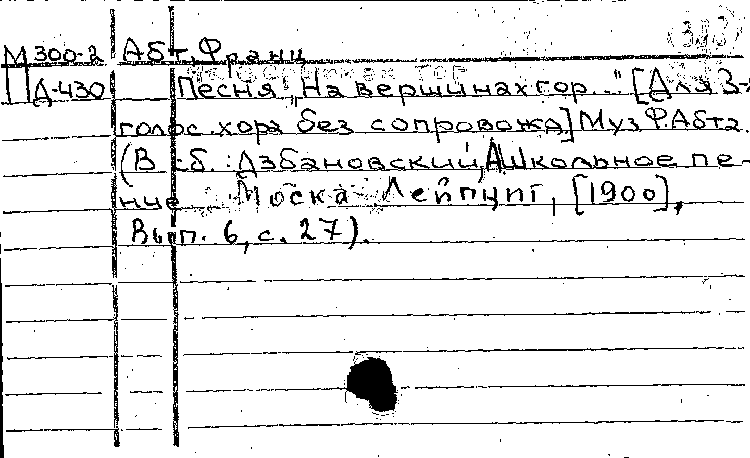 (313)
М300-2 Абт, Франц
Д-430 Песня „На вершинах гор..." [Для 3-х
голос. хора без сопровожд] Муз Ф.Абта.
(В сб.: Дзбановский, А Школьное пе-
ние. Моска-Лейпциг, [1900],
Вып. 6, с. 27).